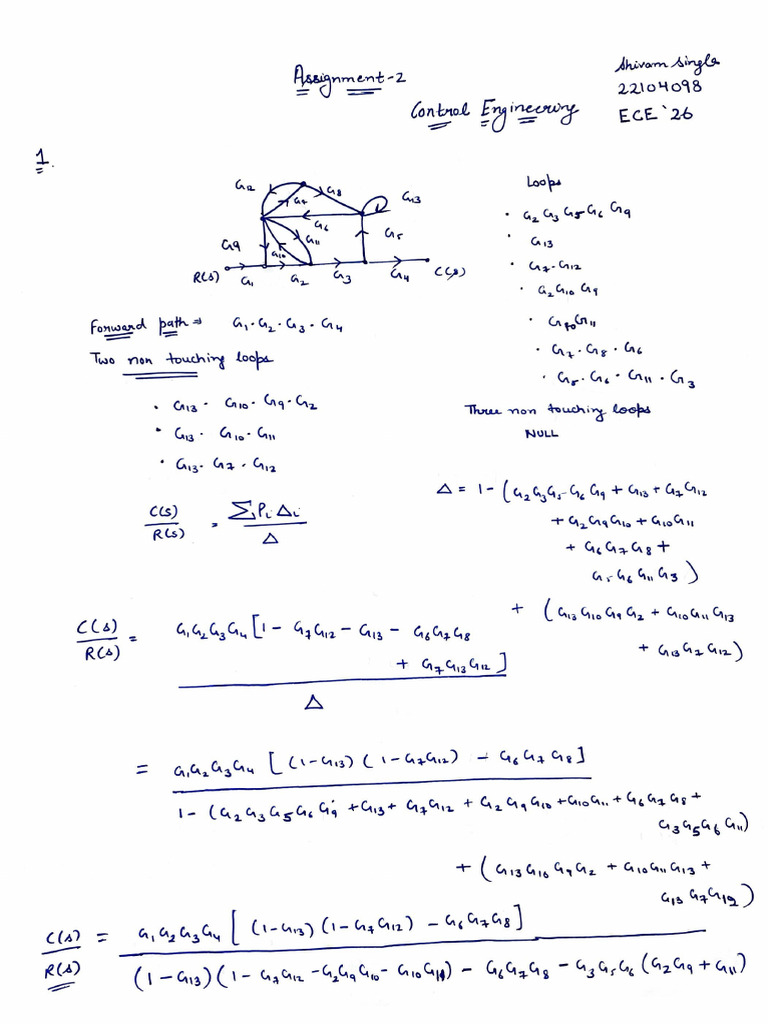 Assignment-2
Shivam Singla
22104098
Control Engineering
ECE'26
1.
G12
G8
G7
G13
G6
G9
G11
G10
G5
R(s)
G1
G2
G3
G4
C(s)
Loops
• G2 G3 G5 G6 G9
• G13
• G7·G12
• G2G10 G9
• G10G11
• G7·G8·G6
• G5·G6·G11·G3
Forward path ⇒ G1·G2·G3·G4
Two non touching loops
• G13· G10·G9·G2
• G13· G10·G11
• G13·G7·G12
Three non touching loops
NULL
C(s)/R(s) = ΣPiΔi/Δ
Δ = 1-(G2G3G5G6G9 + G13 + G7G12
+ G2G9G10 + G10G11
+ G6G7G8 +
G5G6G11G3)
+ (G13G10G9G2 + G10G11G13
+ G13G7G12)
C(s)/R(s) = G1G2G3G4[1 - G7G12 - G13 - G6G7G8
+ G7G13G12]
Δ
= G1G2G3G4 [(1-G13)(1-G7G12) - G6G7G8]
1-(G2G3G5G6G9 + G13 + G7G12 + G2G9G10 + G10G11 + G6G7G8 +
G3G5G6G11)
+ (G13G10G9G2 + G10G11G13 +
G13G7G12)
C(s)/R(s) = G1G2G3G4 [(1-G13)(1-G7G12) - G6G7G8]
(1-G13)(1-G7G12-G2G9G10-G10G11) - G6G7G8 - G3G5G6(G2G9+G11)